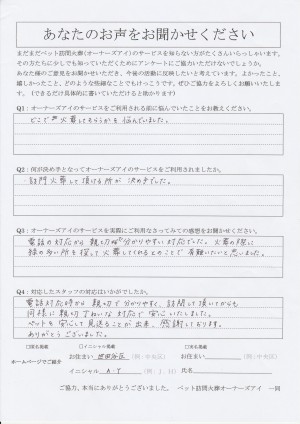 あなたのお声をお聞かせください
まだまだペット訪問火葬(オーナーズアイ)のサービスを知らない方がたくさんいらっしゃいます。
その方たちに少しでも知っていただくためにアンケートにご協力いただけないでしょうか。
あなた様のご意見をお聞かせいただき、今後の活動に反映したいと考えています。よかったこと、
嬉しかったこと、どのような些細なことでもけっこうです。ぜひご協力をよろしくお願いいたしま
す（できるだけ具体的に書いていただけると助かります）
Q1：オーナーズアイのサービスをご利用される前に悩んでいたことをお教えください。
どこで火葬してもらうかを悩んでいました。
Q2：何が決め手となってオーナーズアイのサービスを利用されましたか。
訪問火葬して頂ける所が決め手でした。
Q3：オーナーズアイのサービスを実際にご利用なさってみての感想をお聞かせください。
電話の対応から親切で分かりやすい対応でした。火葬の際に
緑の多い所を探して火葬してくれるとのことで有難いたいと思いました。
Q4：対応したスタッフの対応はいかがでしたか。
電話対応時から親切で分かりやすく、訪問して頂いてからも
同様に親切でねいな対応で安心いたしました。
ペットを安心して見送ることが出来、感謝しております。
ありがとうございました。
□匿名掲載 □イニシャル掲載 □実名掲載
ホームページでご紹介 お住まい 世田谷区 （例：中央区） お住まい （例：中央区）
イニシャル A・T （例：J．H） 氏名
ご協力、本当にありがとうございました。 ペット訪問火葬オーナーズアイ 一同